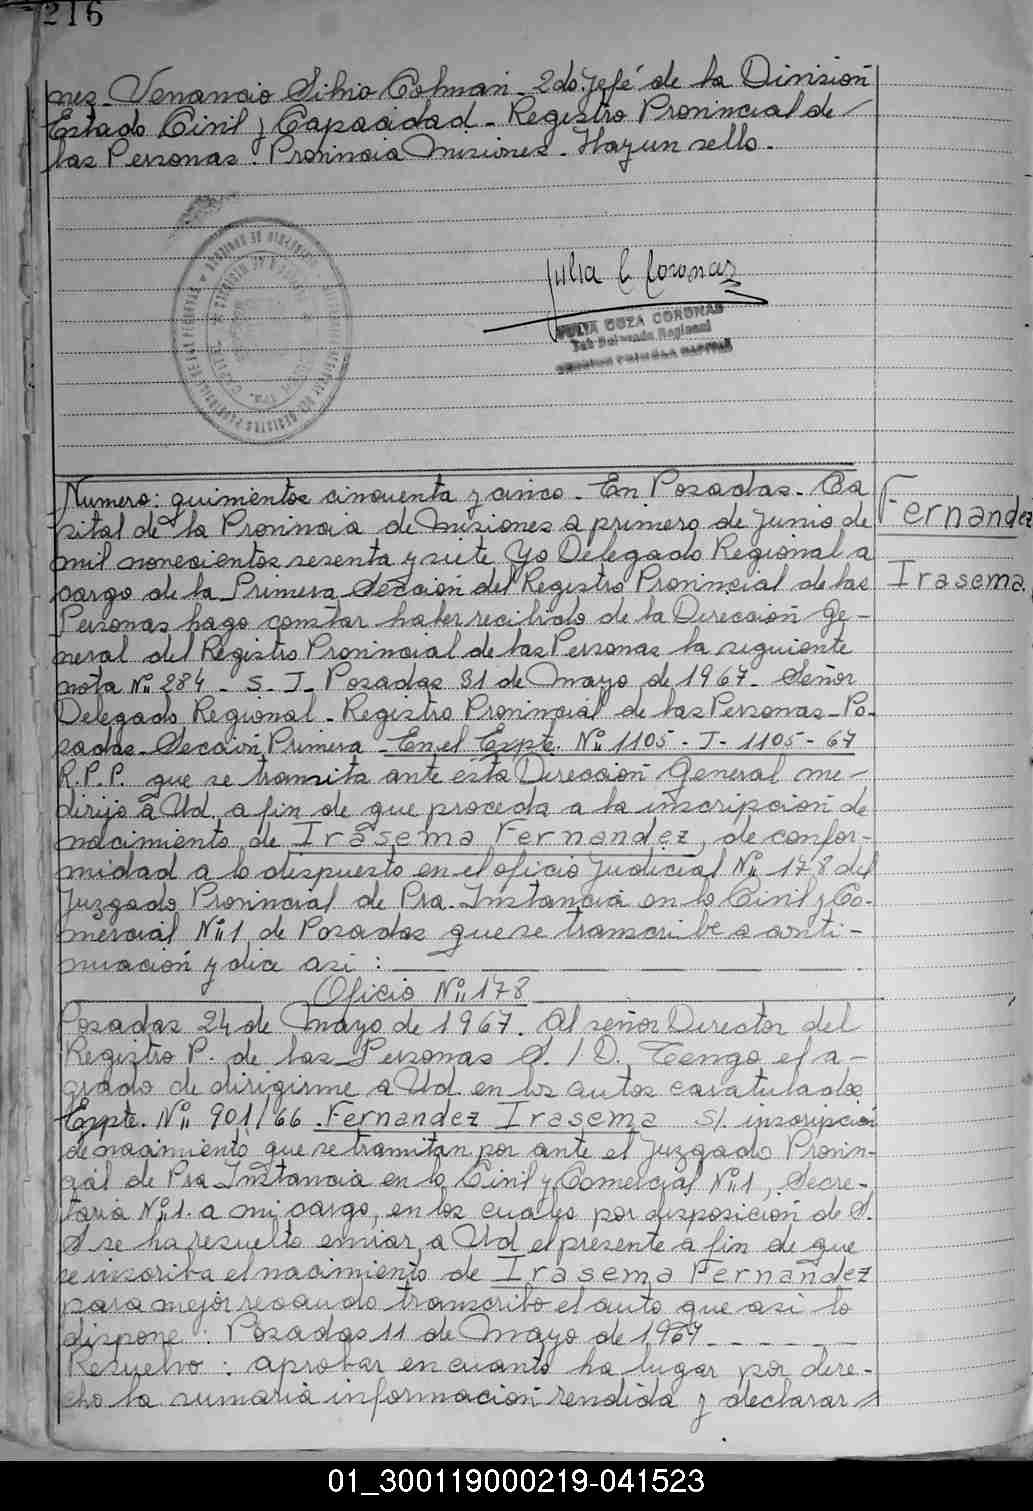 216
nes - Venancio Silvio Colman - 2do. Jefe de la Division
Estado Civil y Capacidad - Registro Provincial de
las Personas. Provincia Misiones - Hay un sello.
Julia C Coronas
JULIA COZA CORONAS
Sub Delegada Regional
SECCION PRIMERA CAPITAL
Numero: quinientos cincuenta y cinco - En Posadas - Ca
pital de la Provincia de Misiones a primero de Junio de
mil novecientos sesenta y siete Yo Delegado Regional a
cargo de la Primera Seccion del Registro Provincial de las
Personas hago constar haber recibido de la Direccion Ge-
neral del Registro Provincial de las Personas la seguiente
nota Nº 284 - S - J - Posadas 31 de Mayo de 1967 - Señor
Delegado Regional - Registro Provincial de las Personas - Po-
sadas - Sección Primera - En el Expte. Nº 1105 - J - 1105 - 67
R.P.P. que se tramita ante esta Direccion General me -
dirijo a Ud. a fin de que proceda a la inscripcion de
nacimiento de Irasema Fernandez, de confor-
midad a lo dispuesto en el oficio Judicial Nº 178 del
Juzgado Provincial de Pra. Instancia en lo Civil y Co-
mercial Nº 1 de Posadas que se transcribe a conti-
nuacion y dice asi :
Oficio Nº 178
Posadas 24 de Mayo de 1967. Al señor Director del
Registro P. de las Personas S. / D. Tengo el a-
grado de dirigirme a Ud. en los autos caratulados
Expte. Nº 901/66 . Fernandez Irasema S/. inscripcion
de nacimiento que se tramitan por ante el Juzgado Provin-
cial de Pra Instancia en lo Civil y Comercial Nº 1, Secre-
taria Nº 1. a mi cargo, en los cuales por disposicion de S.
S se ha resuelto enviar a Ud el presente a fin de que
se inscriba el nacimiento de Irasema Fernandez
para mejor recaudo transcribo el auto que asi lo
dispone : Posadas 11 de Mayo de 1967
Resuelvo : aprobar en cuanto ha lugar por dere-
cho la sumaria informacion rendida y declarar
Fernandez
Irasema.
01_300119000219-041523